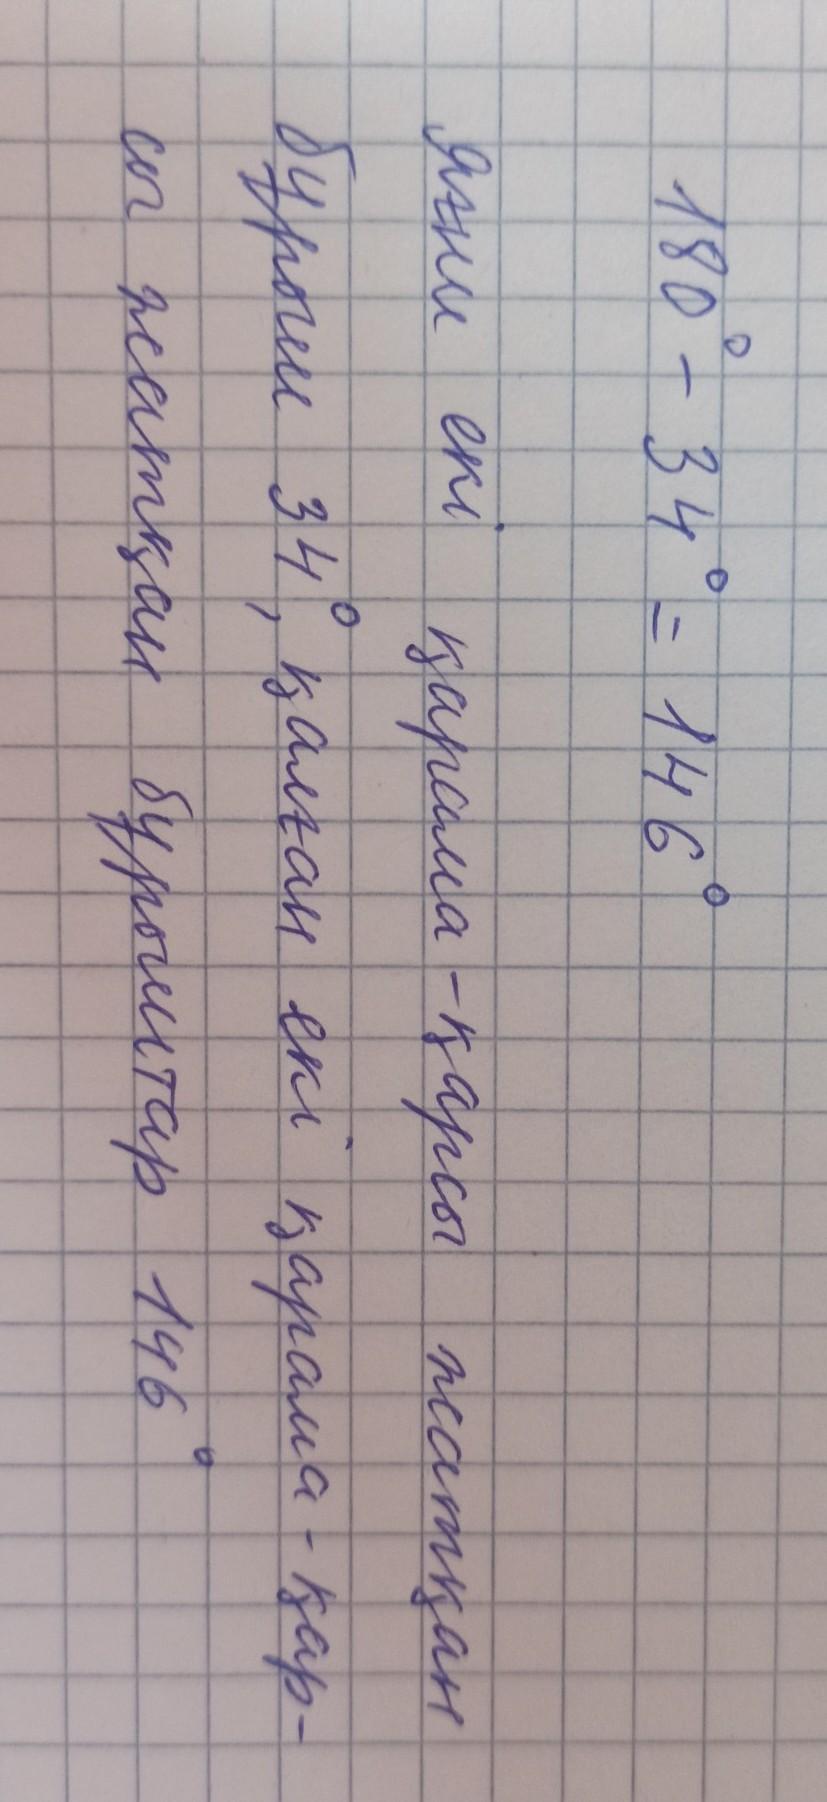 180° - 34° = 146°
Яғни екі қарама-қарсы жатқан
бұрыш 34°, қалған екі қарама-қар-
сы жатқан бұрыштар 146°